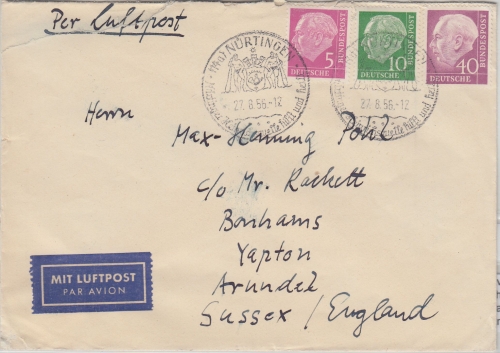 Per Luftpost
5
DEUTSCHE
BUNDESPOST
10
DEUTSCHE
BUNDESPOST
40
DEUTSCHE
BUNDESPOST
NÜRTINGEN
27.8.56.-12
27.8.56.-12
Herrn
Max-Henning Pohl
c/o Mr. Rackett
Bonhams
Yapton
Arundel
Sussex / England
MIT LUFTPOST
PAR AVION